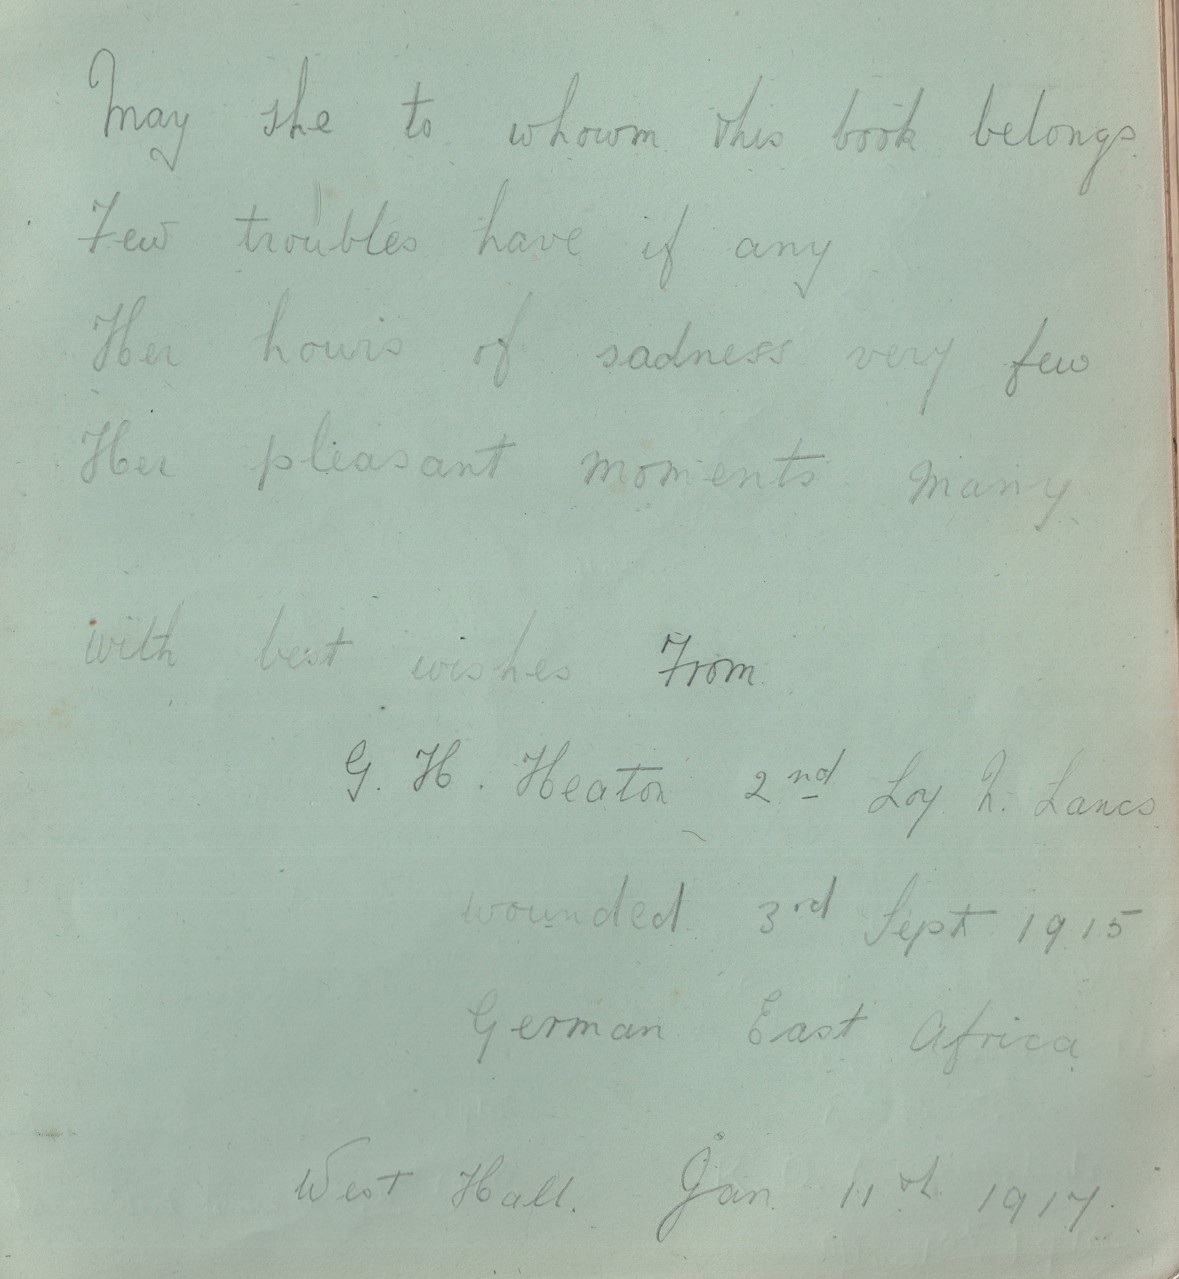 May she to whowm this book belongs
Few troubles have if any
Her hours of sadness very few
Her pleasant moments many
with best wishes From
G. H. Heaton 2nd Loy N. Lancs
wounded 3rd Sept 1915
German East Africa
West Hall. Jan 11th 1917.